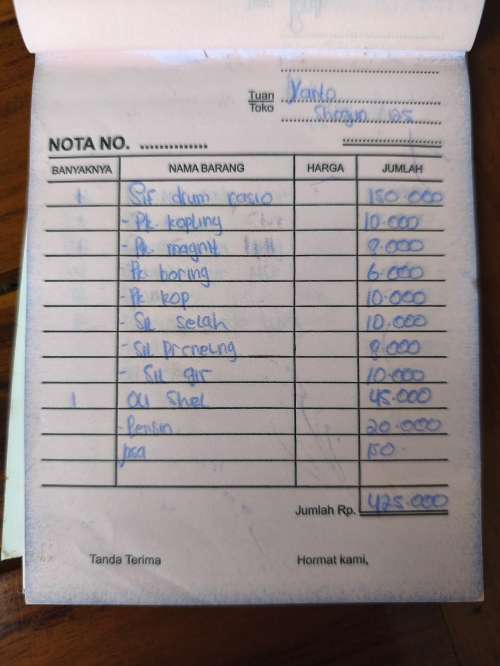 Tuan Yanto
Toko Shogun 125
NOTA NO. ..............
BANYAKNYA NAMA BARANG HARGA JUMLAH
1 Sif drum rasio 150.000
- Pk. kopling 10.000
- Pk. magnit 9.000
- Pk. boring 6.000
- Pk kop 10.000
- Sil selah 10.000
- Sil 8.000
- Sil gir 10.000
1 Oli Shel 45.000
- Bensin 20.000
jasa 150.
Jumlah Rp. 425.000
Tanda Terima Hormat kami,